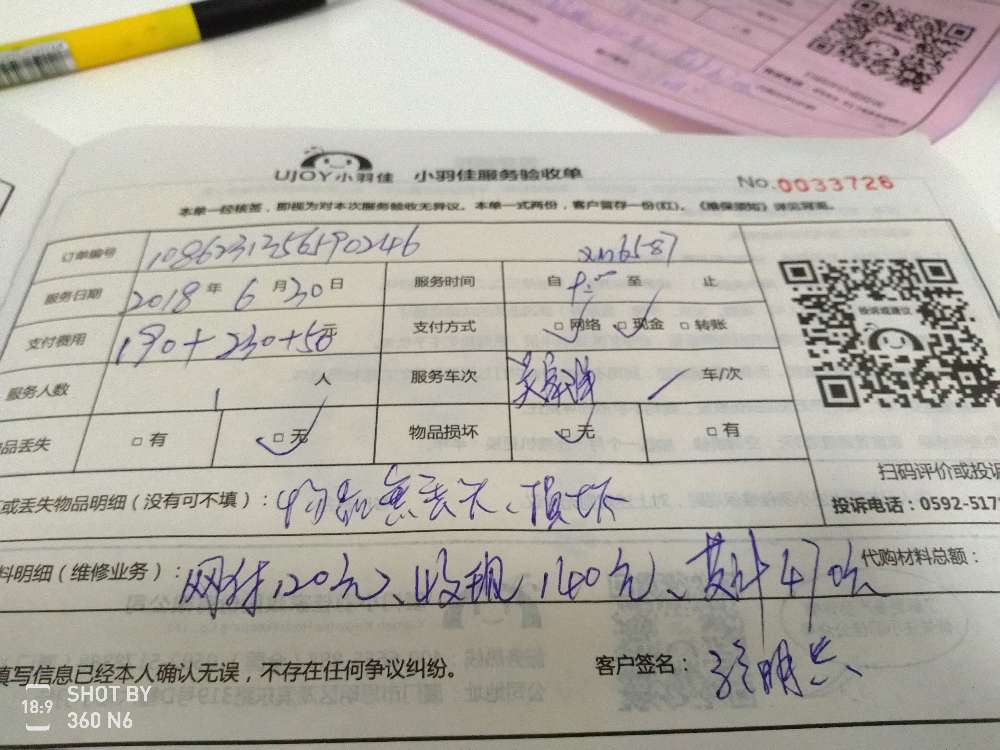 UJOY小羽佳 小羽佳服务验收单
No.0033726
本单一经核签，即视为对本次服务验收无异议。本单一式两份，客户留存一份(红)。《维保须知》详见背面。
订单编号 1086231356590246
服务日期 2018 年 6 月 30 日 服务时间 自 至 止
支付费用 190+230+50元 支付方式 □网络 □现金 □转账
服务人数 1 人 服务车次 车/次
品丢失 □有 □无 物品损坏 □无 □有
投诉或建议
扫码评价或投诉
投诉电话：0592-517
或丢失物品明细（没有可不填）：物品無丢失、损坏
料明细（维修业务）： 120元、收现140元、共计470元 代购材料总额：
填写信息已经本人确认无误，不存在任何争议纠纷。
客户签名：
SHOT BY
18:9 360 N6